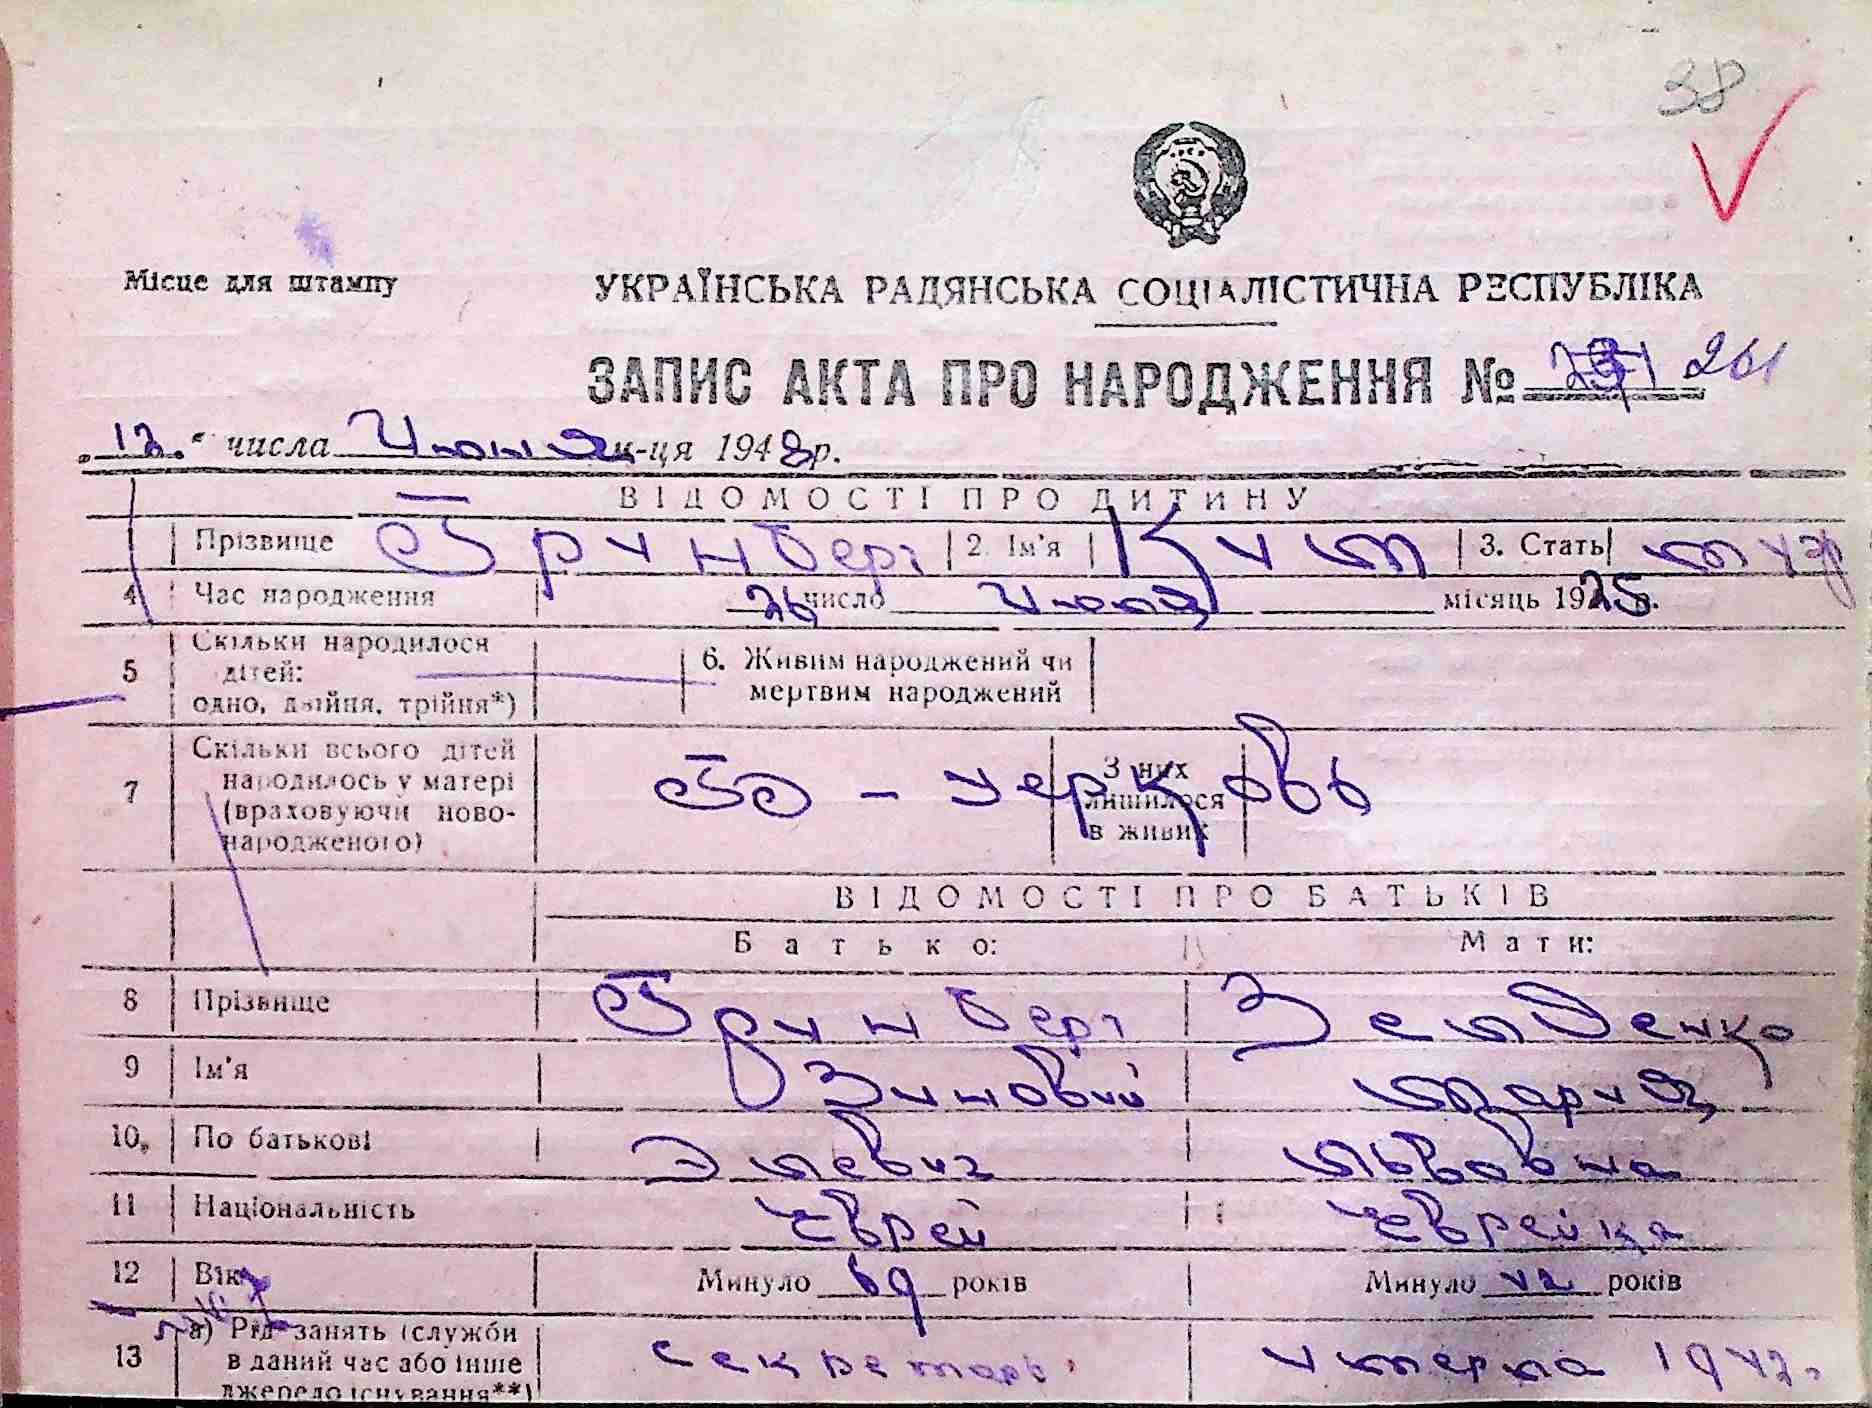 38
Місце для штампу
УКРАЇНСЬКА РАДЯНСЬКА СОЦІАЛІСТИЧНА РЕСПУБЛІКА
ЗАПИС АКТА ПРО НАРОДЖЕННЯ № 261
"12." числа Июня м-ця 1948 р.
ВІДОМОСТІ ПРО ДИТИНУ
Прізвище Гринберг 2. Ім'я Ким 3. Стать муж
4 Час народження 26 число Июля місяць 1925 р.
5 Скільки народилося дітей: одно, двійня, трійня*) 6. Живим народжений чи мертвим народжений
7 Скільки всього дітей народилось у матері (враховуючи новонародженого) З них лишилося в живих
ВІДОМОСТІ ПРО БАТЬКІВ
Батько: Мати:
8 Прізвище Гринберг Зельденко
9 Ім'я Зиновий Мария
10. По батькові Львовна
11 Національність Еврей Еврейка
12 Вік Минуло 69 років Минуло років
13 а) Рід занять (служби в даний час або інше джерело існування**) секретарь умерла 1942.